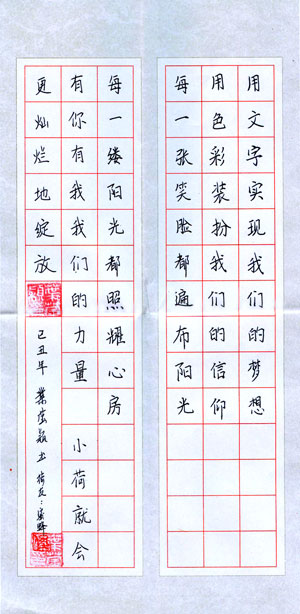 用文字实现我们的梦想
用色彩装扮我们的信仰
每一张笑脸都遍布阳光
每一缕阳光都照耀心房
有你有我我们的力量 小荷就会
更灿烂地绽放
己丑年 葉